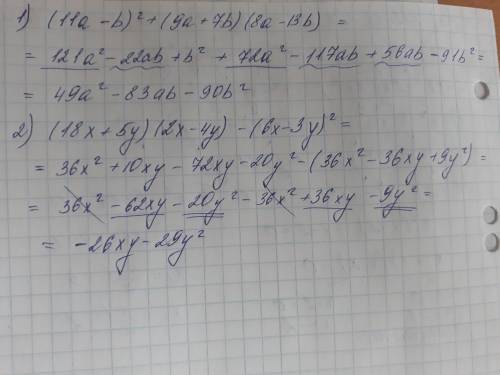 1) (11a - b)² + (9a + 7b)(8a - 13b) =
= 121a² - 22ab + b² + 72a² - 117ab + 56ab - 91b² =
= 49a² - 83ab - 90b²
2) (18x + 5y)(2x - 4y) - (6x - 3y)² =
= 36x² + 10xy - 72xy - 20y² - (36x² - 36xy + 9y²) =
= 36x² - 62xy - 20y² - 36x² + 36xy - 9y² =
= -26xy - 29y²